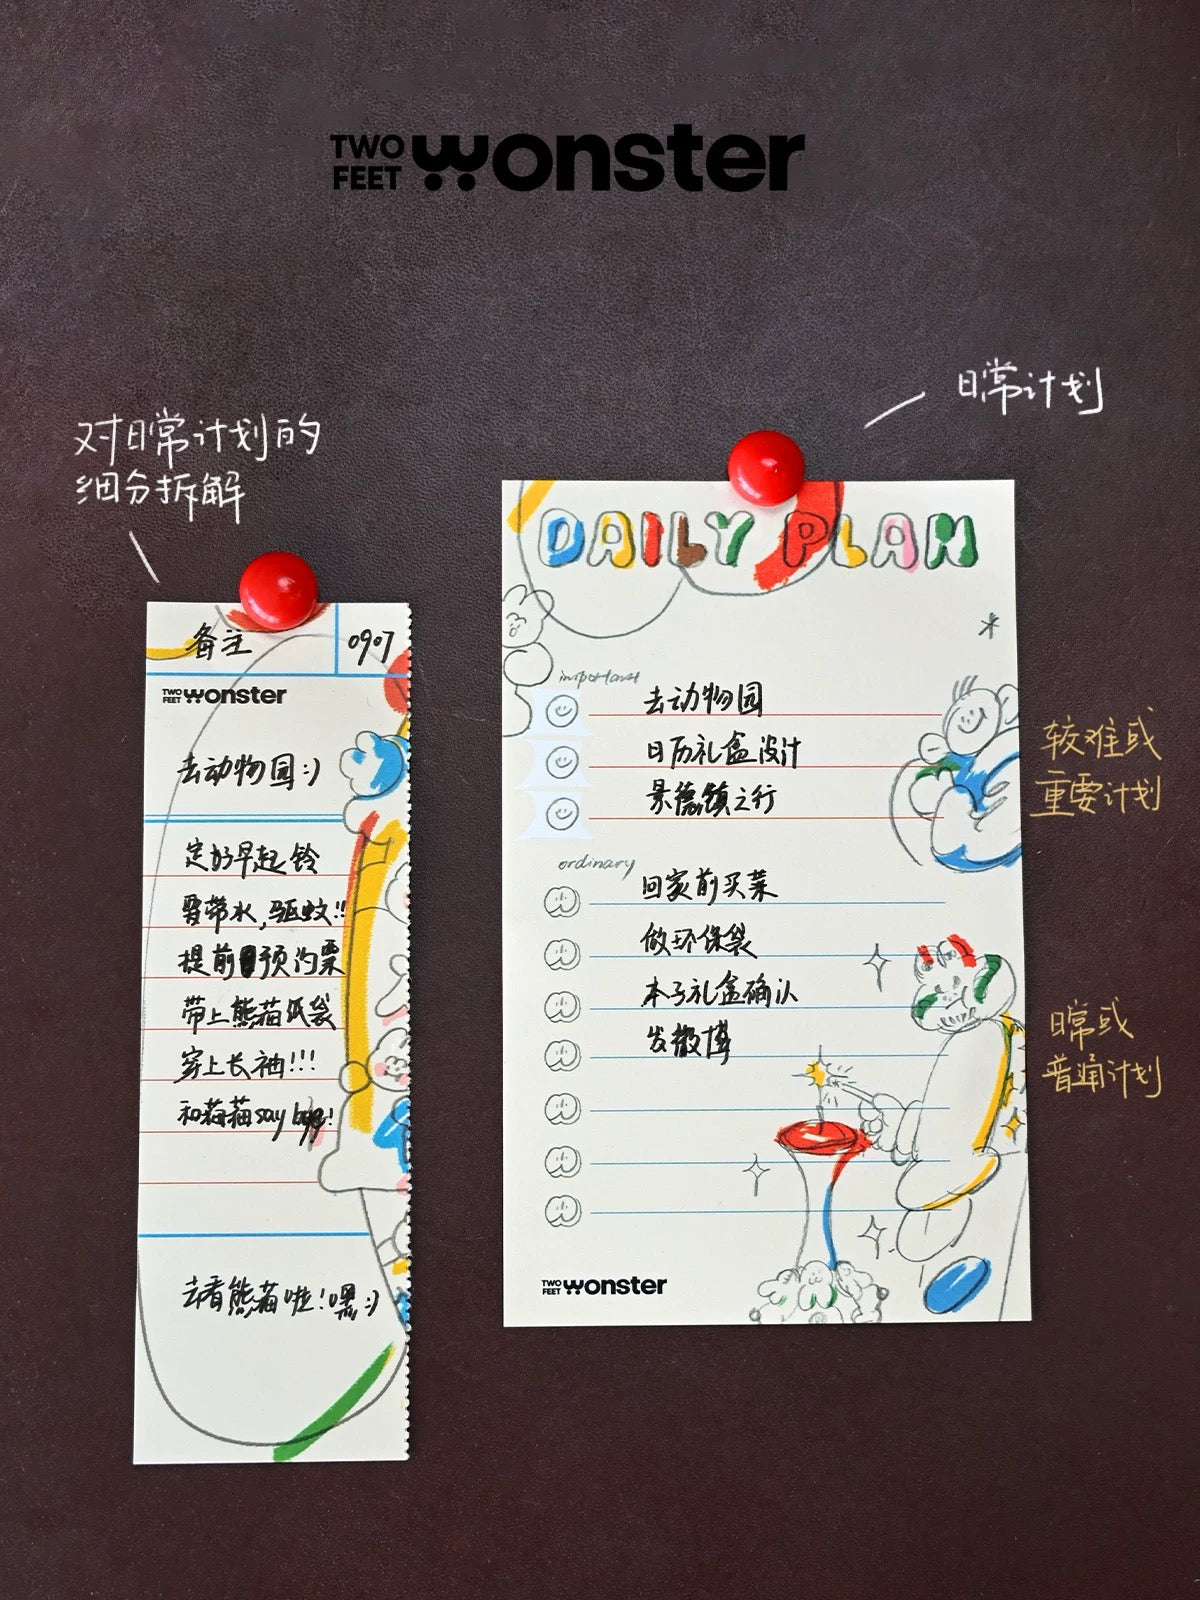 TWO
FEET wonster
日常计划
对日常计划的
细分拆解
备注 0907
TWO
FEET wonster
去动物园:)
定好早起铃
要带水,驱蚊!!
提前预约票
带上熊猫纸袋
穿上长袖!!!
和猫猫say bye!
去看熊猫啦!嘿:)
DAILY PLAN
important
去动物园
日历礼盒设计
景德镇之行
ordinary
回家前买菜
做环保袋
本子礼盒确认
发微博
TWO
FEET wonster
较难或
重要计划
日常或
普通计划